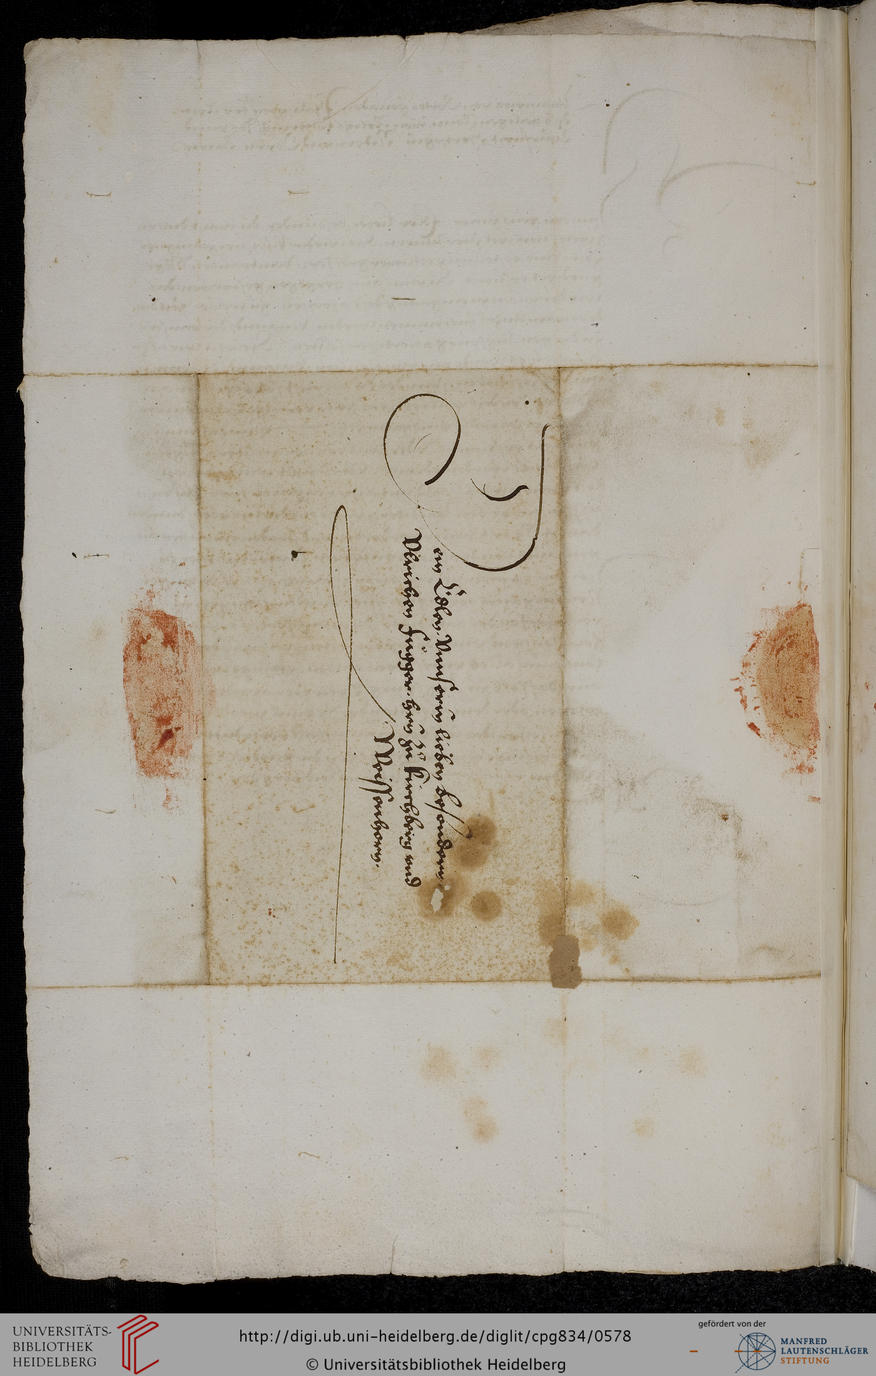 Dem Edlen, Vnnserm lieben besondern
Vlrichen Fugger, hern zu Kirchberg vnd
Weissenhorn.
UNIVERSITÄTS-
BIBLIOTHEK
HEIDELBERG
http://digi.ub.uni-heidelberg.de/diglit/cpg834/0578
© Universitätsbibliothek Heidelberg
gefördert von der
MANFRED
LAUTENSCHLÄGER
STIFTUNG